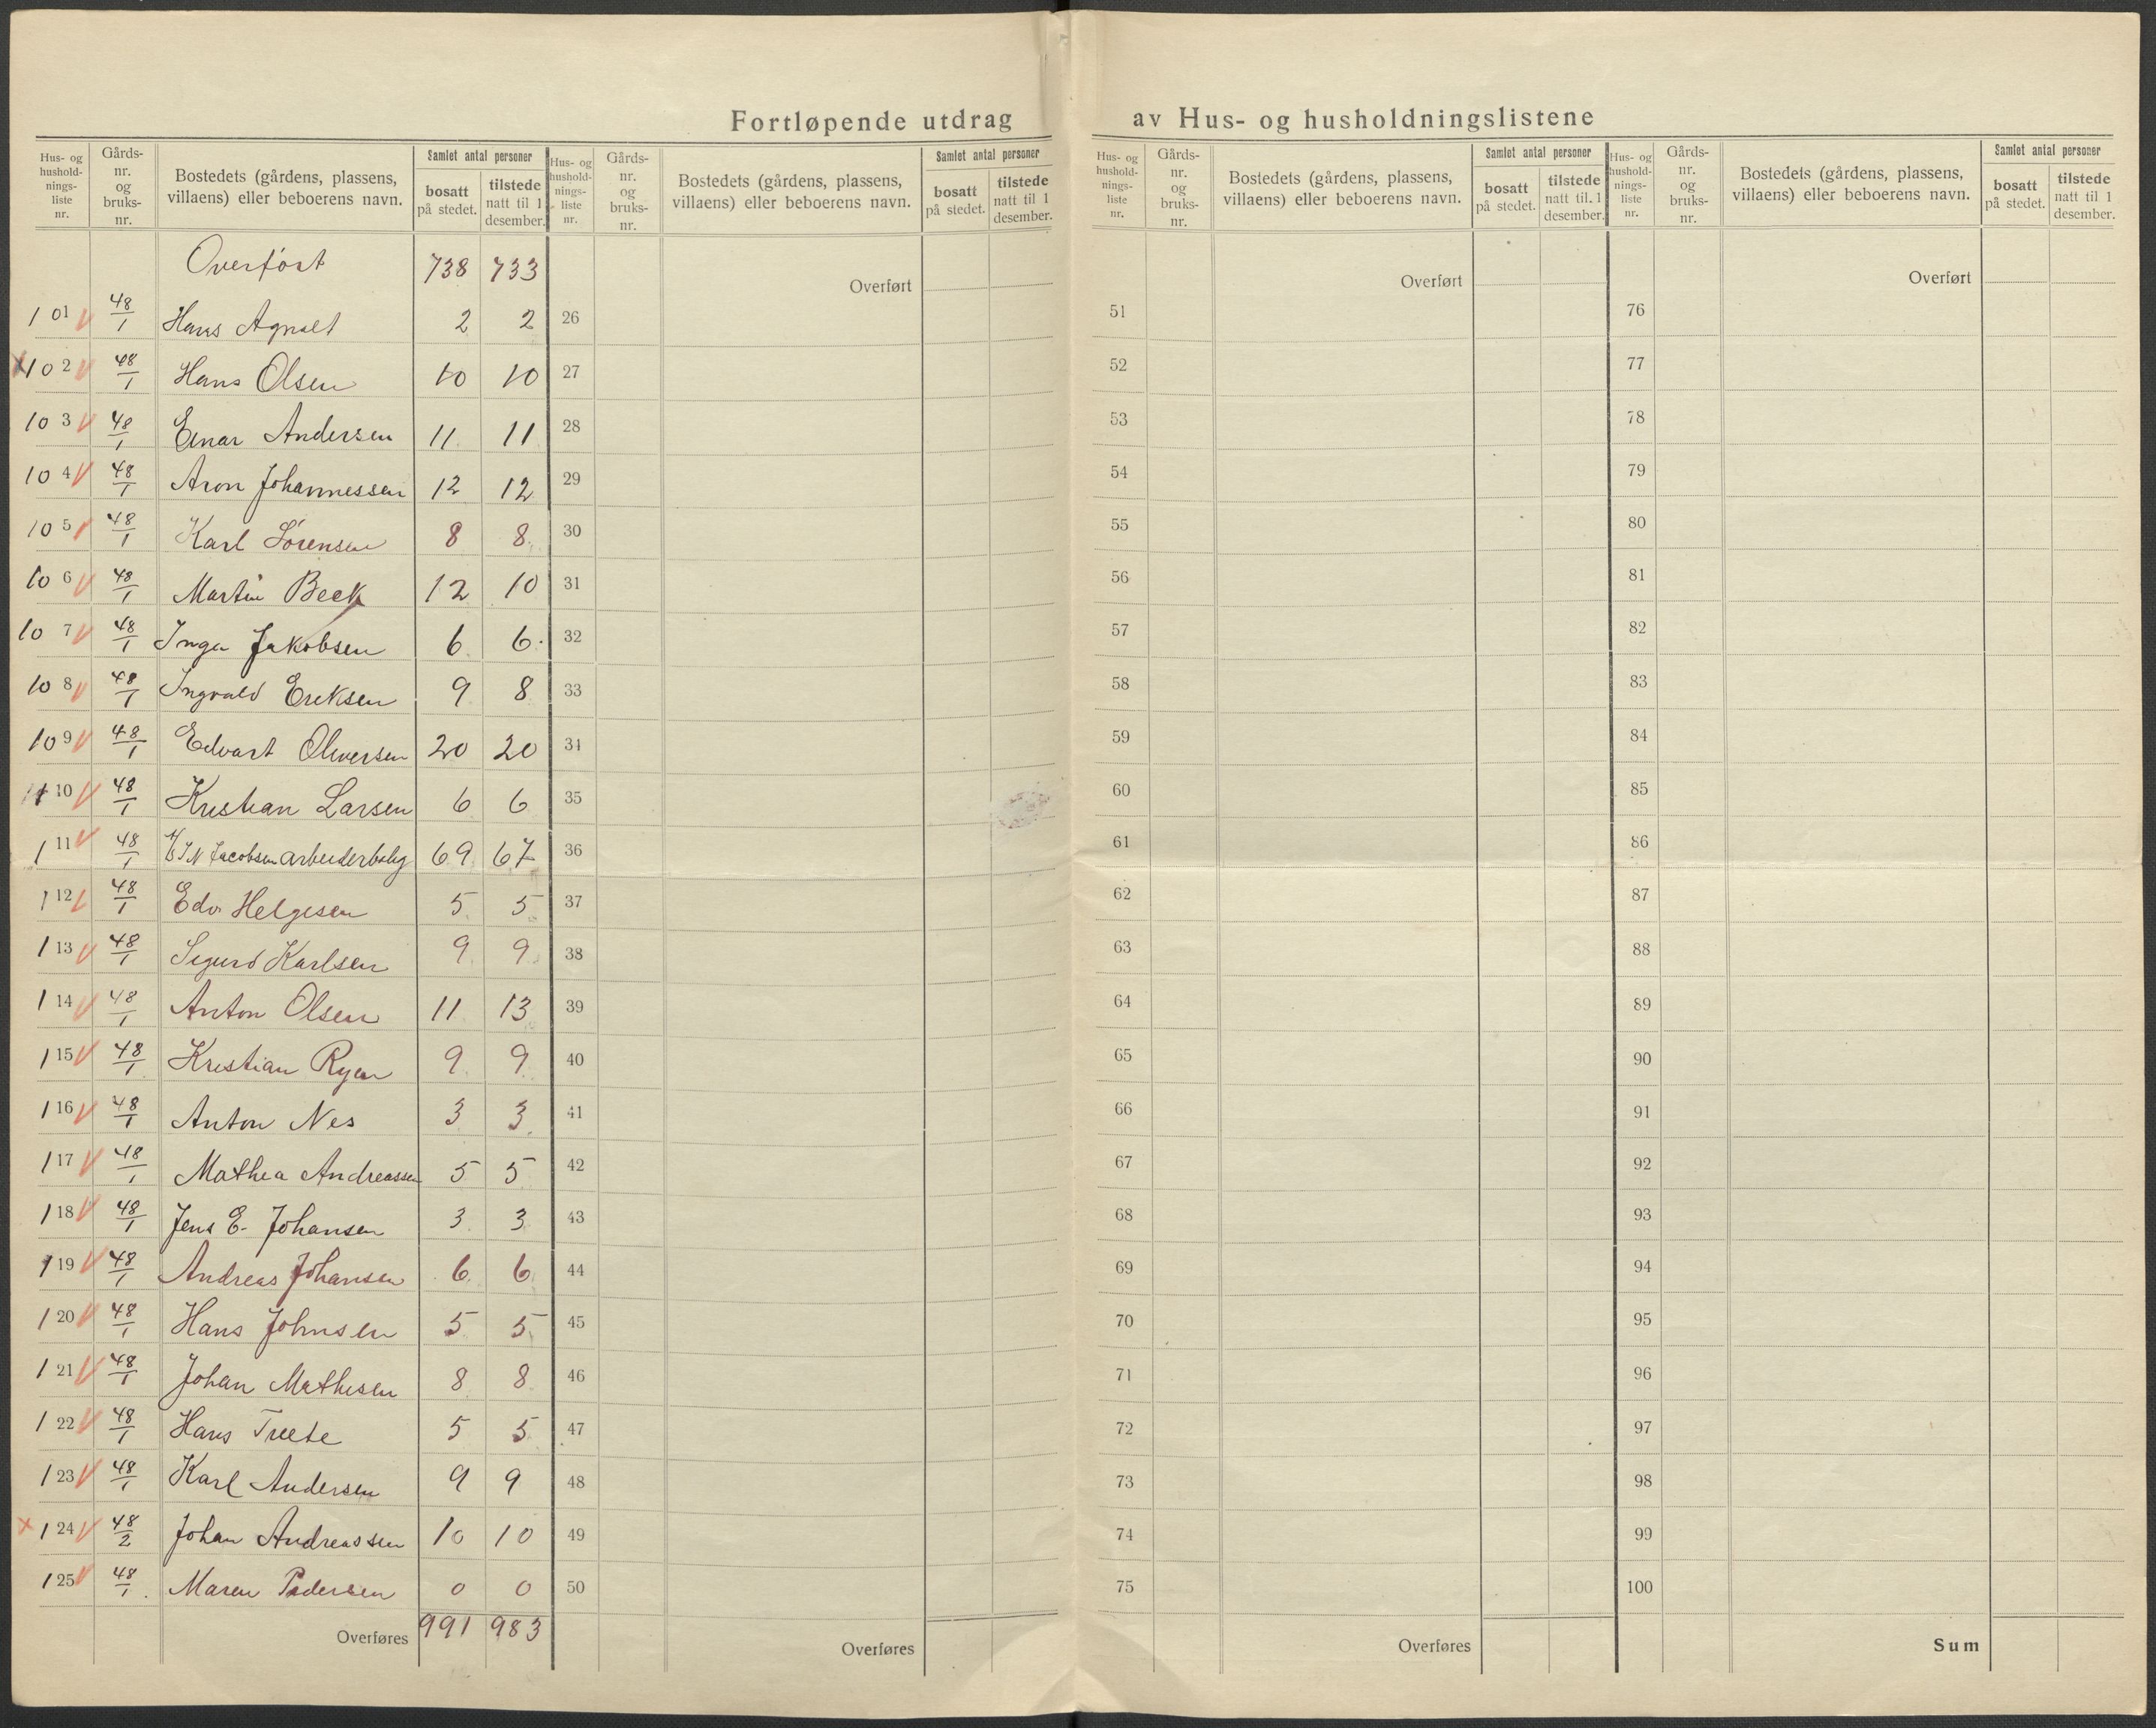 Fortløpende utdrag av Hus- og husholdningslistene
Hus- og hushold- nings- liste nr. | Gårds- nr. og bruks- nr. | Bostedets (gårdens, plassens, villaens) eller beboerens navn. | Samlet antal personer | bosatt på stedet. | tilstede natt til 1 desember.
Overført 738 733
101 48/1 Hans Agnalt 2 2
102 48/1 Hans Olsen 10 10
103 48/1 Einar Andersen 11 11
104 48/1 Aron Johannessen 12 12
105 48/1 Karl Sørensen 8 8
106 48/1 Martin Beck 12 10
107 48/1 Inga Jakobsen 6 6
108 48/1 Ingvald Eriksen 9 8
109 48/1 Edvart Oliversen 20 20
110 48/1 Kristian Larsen 6 6
111 48/1 Jacobsen arbeiderbolig 69 67
112 48/1 Edv. Helgesen 5 5
113 48/1 Sigurd Karlsen 9 9
114 48/1 Anton Olsen 11 13
115 48/1 Kristian Ryen 9 9
116 48/1 Anton Nes 3 3
117 48/1 Mathea Andreassen 5 5
118 48/1 Jens E. Johansen 3 3
119 48/1 Andreas Johansen 6 6
120 48/1 Hans Johnsen 5 5
121 48/1 Johan Mathisen 8 8
122 48/1 Hans 5 5
123 48/1 Karl Andersen 9 9
124 48/2 Johan Andreassen 10 10
125 48/1 Maren Pedersen 0 0
Overføres 991 983
Hus- og hushold- nings- liste nr. | Gårds- nr. og bruks- nr. | Bostedets (gårdens, plassens, villaens) eller beboerens navn. | Samlet antal personer | bosatt på stedet. | tilstede natt til 1 desember.
Overført
26
27
28
29
30
31
32
33
34
35
36
37
38
39
40
41
42
43
44
45
46
47
48
49
50
Overføres
Hus- og hushold- nings- liste nr. | Gårds- nr. og bruks- nr. | Bostedets (gårdens, plassens, villaens) eller beboerens navn. | Samlet antal personer | bosatt på stedet. | tilstede natt til 1 desember.
Overført
51
52
53
54
55
56
57
58
59
60
61
62
63
64
65
66
67
68
69
70
71
72
73
74
75
Overføres
Hus- og hushold- nings- liste nr. | Gårds- nr. og bruks- nr. | Bostedets (gårdens, plassens, villaens) eller beboerens navn. | Samlet antal personer | bosatt på stedet. | tilstede natt til 1 desember.
Overført
76
77
78
79
80
81
82
83
84
85
86
87
88
89
90
91
92
93
94
95
96
97
98
99
100
Sum